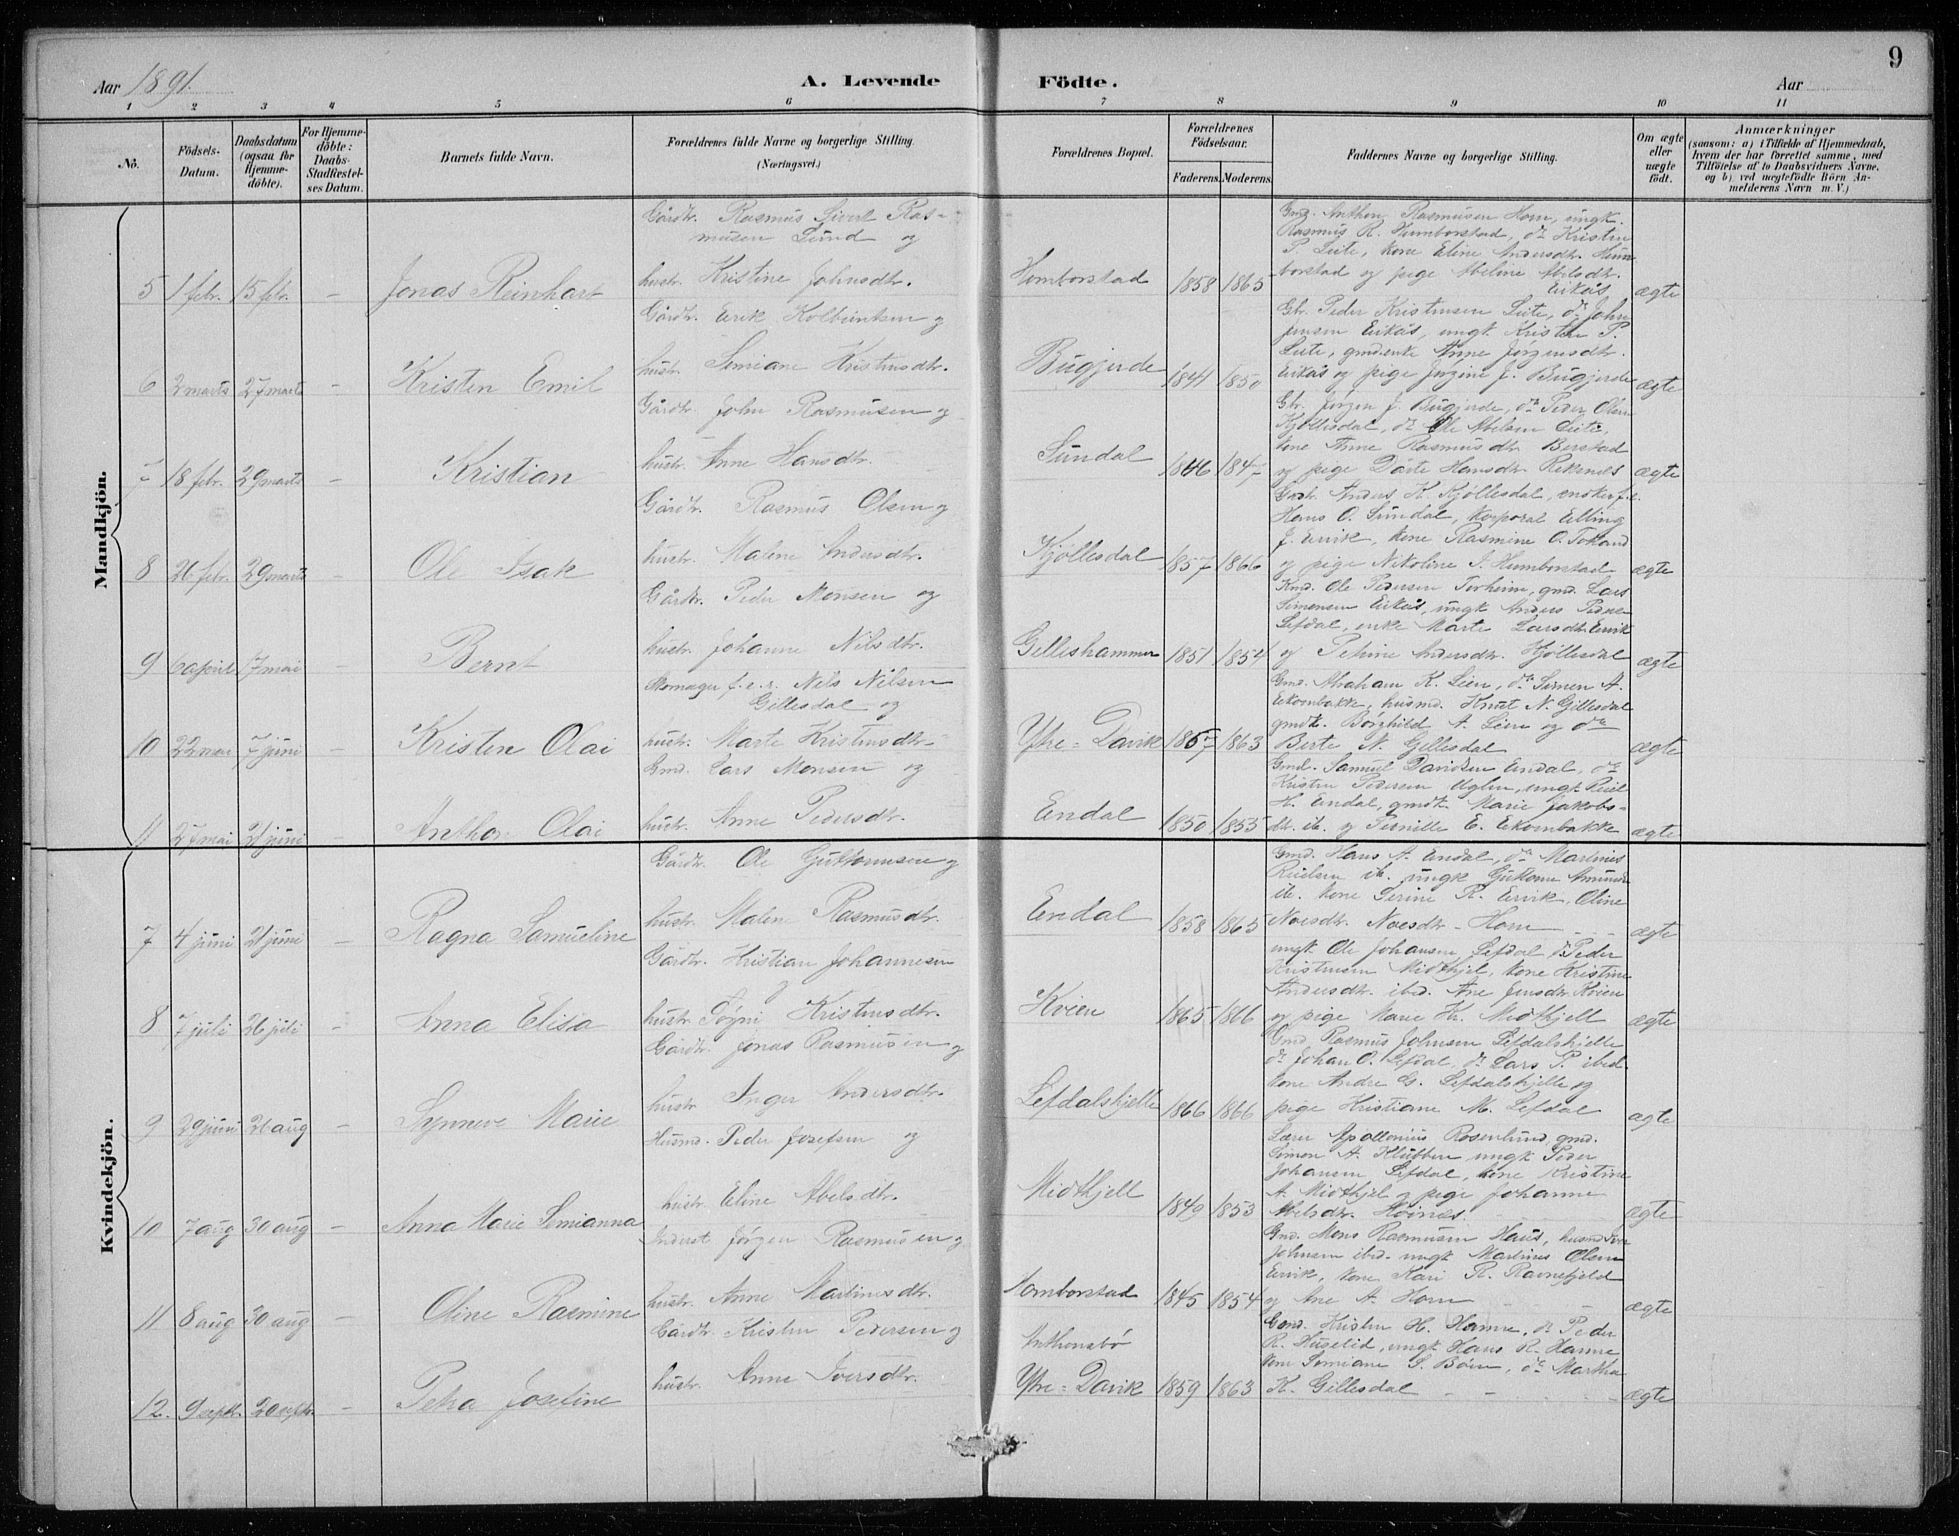 9
Aar 1891.
A. Levende Födte.
Aar
1 2 3 4 5 6 7 8 9 10 11
No.
Födsels-Datum.
Daabsdatum (ogsaa for Hjemme-döbte).
For Hjemme-döbte: Daabs-Stadfæstel-ses Datum.
Barnets fulde Navn.
Forældrenes fulde Navne og borgerlige Stilling. (Næringsvei.)
Forældrenes Bopæl.
Forældrenes Födselsaar.
Faderens. Moderens.
Faddernes Navne og borgerlige Stilling.
Om ægte eller uægte födt.
Anmærkninger
(saasom: a) i Tilfælde af Hjemmedaab,
hvem der har forrettet samme, med
Tilföielse af to Daabsvidners Navne.
og b) ved uægtefödte Börn An-
melderens Navn m. V.)
Mandkjön.
5 1 febr. 15 febr. – Jonas Reinhart
Gårdbr. Rasmus Sivert Ras-
musen Lund og
hustr. Kristine Johnsdtr.
Homborstad 1858 1865
Gmd. Anthon Rasmusen Horn, ungk.
Rasmus R. Humborstad, do Kristen
P. Leite, kone Eline Andersdtr. Hum-
borstad og pige Abeline Abelsdtr.
Eikås
ægte
6 3 marts 27 marts – Kristen Emil
Gårdbr. Eerik Kolbeintsen og
hustr. Semiane Kristensdtr.
Bugjerde 1841 1850
Gbr. Peder Kristensen Leite, do John
Jensen Eikås, ungk. Kristen P.
Leite, gmdenke Anne Jørgensdtr.
Eikås og pige Jørgine J. Bugjerde
ægte
7 18 febr. 29 marts – Kristian
Gårdbr. John Rasmusen og
hustr. Anne Hansdtr.
Sundal 1846 1847
Gbr. Jørgen J. Bugjerde, do Peder Olsen
Kjøllesdal, do Ole Abelsen Leite,
kone Anne Rasmusdtr. Berstad
og pige Dorte Hansdtr. Rekenes
ægte
8 26 febr. 29 marts – Ole Isak
Gårdbr. Rasmus Olsen og
hustr. Malene Andersdtr.
Kjøllesdal 1857 1866
Gmd. Anders K. Kjøllesdal, ensker f.e.
Hans O. Sundal, korporal Elling
J. Ervik, kone Rasmine O. Tokand
og pige Nikoline J. Humborstad
ægte
9 6 april 17 mai – Bernt
Gårdbr. Peder Monsen og
hustr. Johanne Nilsdtr.
Gilleshammer 1851 1854
Kmd. Ole Pedersen Torheim, gmd. Lars
Simensen Eikås, ungk. Anders Peders.
Lefdal, enke Marte Larsdtr. Ervik
og Petrine Andersdtr. Kjøllesdal
ægte
10 22 mai 7 juni – Kristen Olai
Skomager f.e.r. Nils Nilsen
Gillesdal og
hustr. Marte Kristensdtr.
Ytre-Davik 1857 1863
Gmd. Abraham K. Leen, do Simen A.
Eikornbakke, husmd. Knut N. Gillesdal
gmdk. Bornhild A. Leen og do
Berte N. Gillesdal
ægte
11 27 mai 21 juni – Anthon Olai
Gmd. Lars Monsen og
hustr. Anne Pedersdtr.
Endal 1850 1855
Gmd. Samuel Davidsen Endal, do
Kristen Pedersen Uglen, ungk. Reiel
H. Endal, gmdk. Marie Jakobs-
dtr. ib. og Pernille E. Eikornbakke
ægte
Kvindekjön.
7 4 juni 21 juni – Ragna Samueline
Gårdbr. Ole Guttormsen og
hustr. Malene Rasmusdtr.
Endal 1858 1865
Gmd. Hans A. Endal, do Martines
Reielsen ib. ungk Gutorm Amunds.
ib. kone Serine R. Ervik, Oline
Noesdtr. Noesdtr. Horn
ægte
8 7 juli 26 juli – Anna Elisa
Gårdbr. Kristian Johannesen
og
hustr. Søgni Kristensdtr.
Kvien 1865 1866
ungk. Ole Johansen Lefdal, do Peder
Kristensen Midthjel, kone Kristine
Andersdtr. ibid. Ane Jensdtr. Kvien
og pige Marie Kr. Midthjell
ægte
9 29 juni 26 aug – Synneve Marie
Gårdbr. Jonas Rasmusen og
hustr. Inger Andersdtr.
Lefdalshjelle 1866 1866
Gmd. Rasmus Johnsen Lefdalshjelle
do Johan O. Lefdal, do Lars P. ibid.
kone Andre G. Lefdalshjelle og
pige Kristiane M. Lefdal
ægte
10 7 aug 30 aug – Anna Marie Semianna
Husmd. Peder Josefsen og
hustr. Eline Abelsdtr.
Midthjell 1849 1853
Lærer Apollonius Rosenlund, gmd.
Simon A. Klubben, ungk Peder
Johansen Lefdal, kone Kristine
A. Midthjel og pige Johanne
Abelsdtr. Høines.
ægte
11 8 aug 30 aug – Oline Rasmine
Inderst Jørgen Rasmusen og
hustr. Anne Martinesdtr.
Homborstad 1845 1854
Gmd. Mons Rasmusen Haus, husmd Iver
Johnsen ibid. ungk Martines Olsen
Ervik, kone Kari R. Ravnefjeld
og Ane A. Horn
ægte
12. 9 septr. 20 septr. – Petra Josefine
Gårdbr. Kristen Pedersen og
hustr. Anne Iversdtr.
Anthonsbø
Ytre-Davik 1859 1863
Gmd. Kristen H. Hamre, do Peder
R. Huselid, ungk Hans R. Hamre
kone Semiane S. Børen, do Martha
K. Gillesdal
ægte